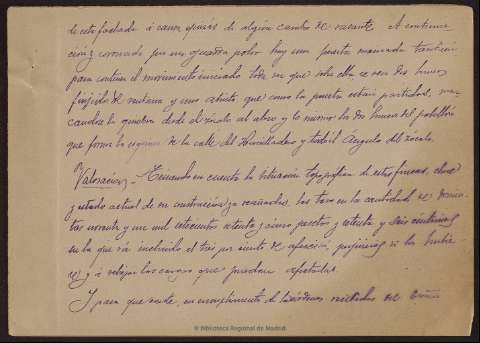 de esta fachada á causa quizás de algún cambio de rasante. A continua
ción y coronada por un guarda polvo hay una puerta marcada también
para contener el movimiento iniciado toda vez que sobre ella se ven dos huecos
fingidos de ventana y uno abierto que como la puerta están partidos, mar
cándose la quiebra desde el zócalo al alero y lo mismo los dos huecos del pabellón
que forma la esquina de la calle del Humilladero y Ángulo del zócalo.
Valoración. Teniendo en cuenta la situación topográfica de estas fincas, clase
y estado actual de su construcción ya reseñados, las taso en la cantidad de doscien
tas noventa y un mil setecientas setenta y cinco pesetas y setenta y seis céntimos
en la que vá incluido el tres por ciento de afección, perjuicios si los hubie
re y á rebajar las cargas que puedan afectarlas.
Y para que conste, en cumplimiento de las órdenes recibidas del
© Biblioteca Regional de Madrid